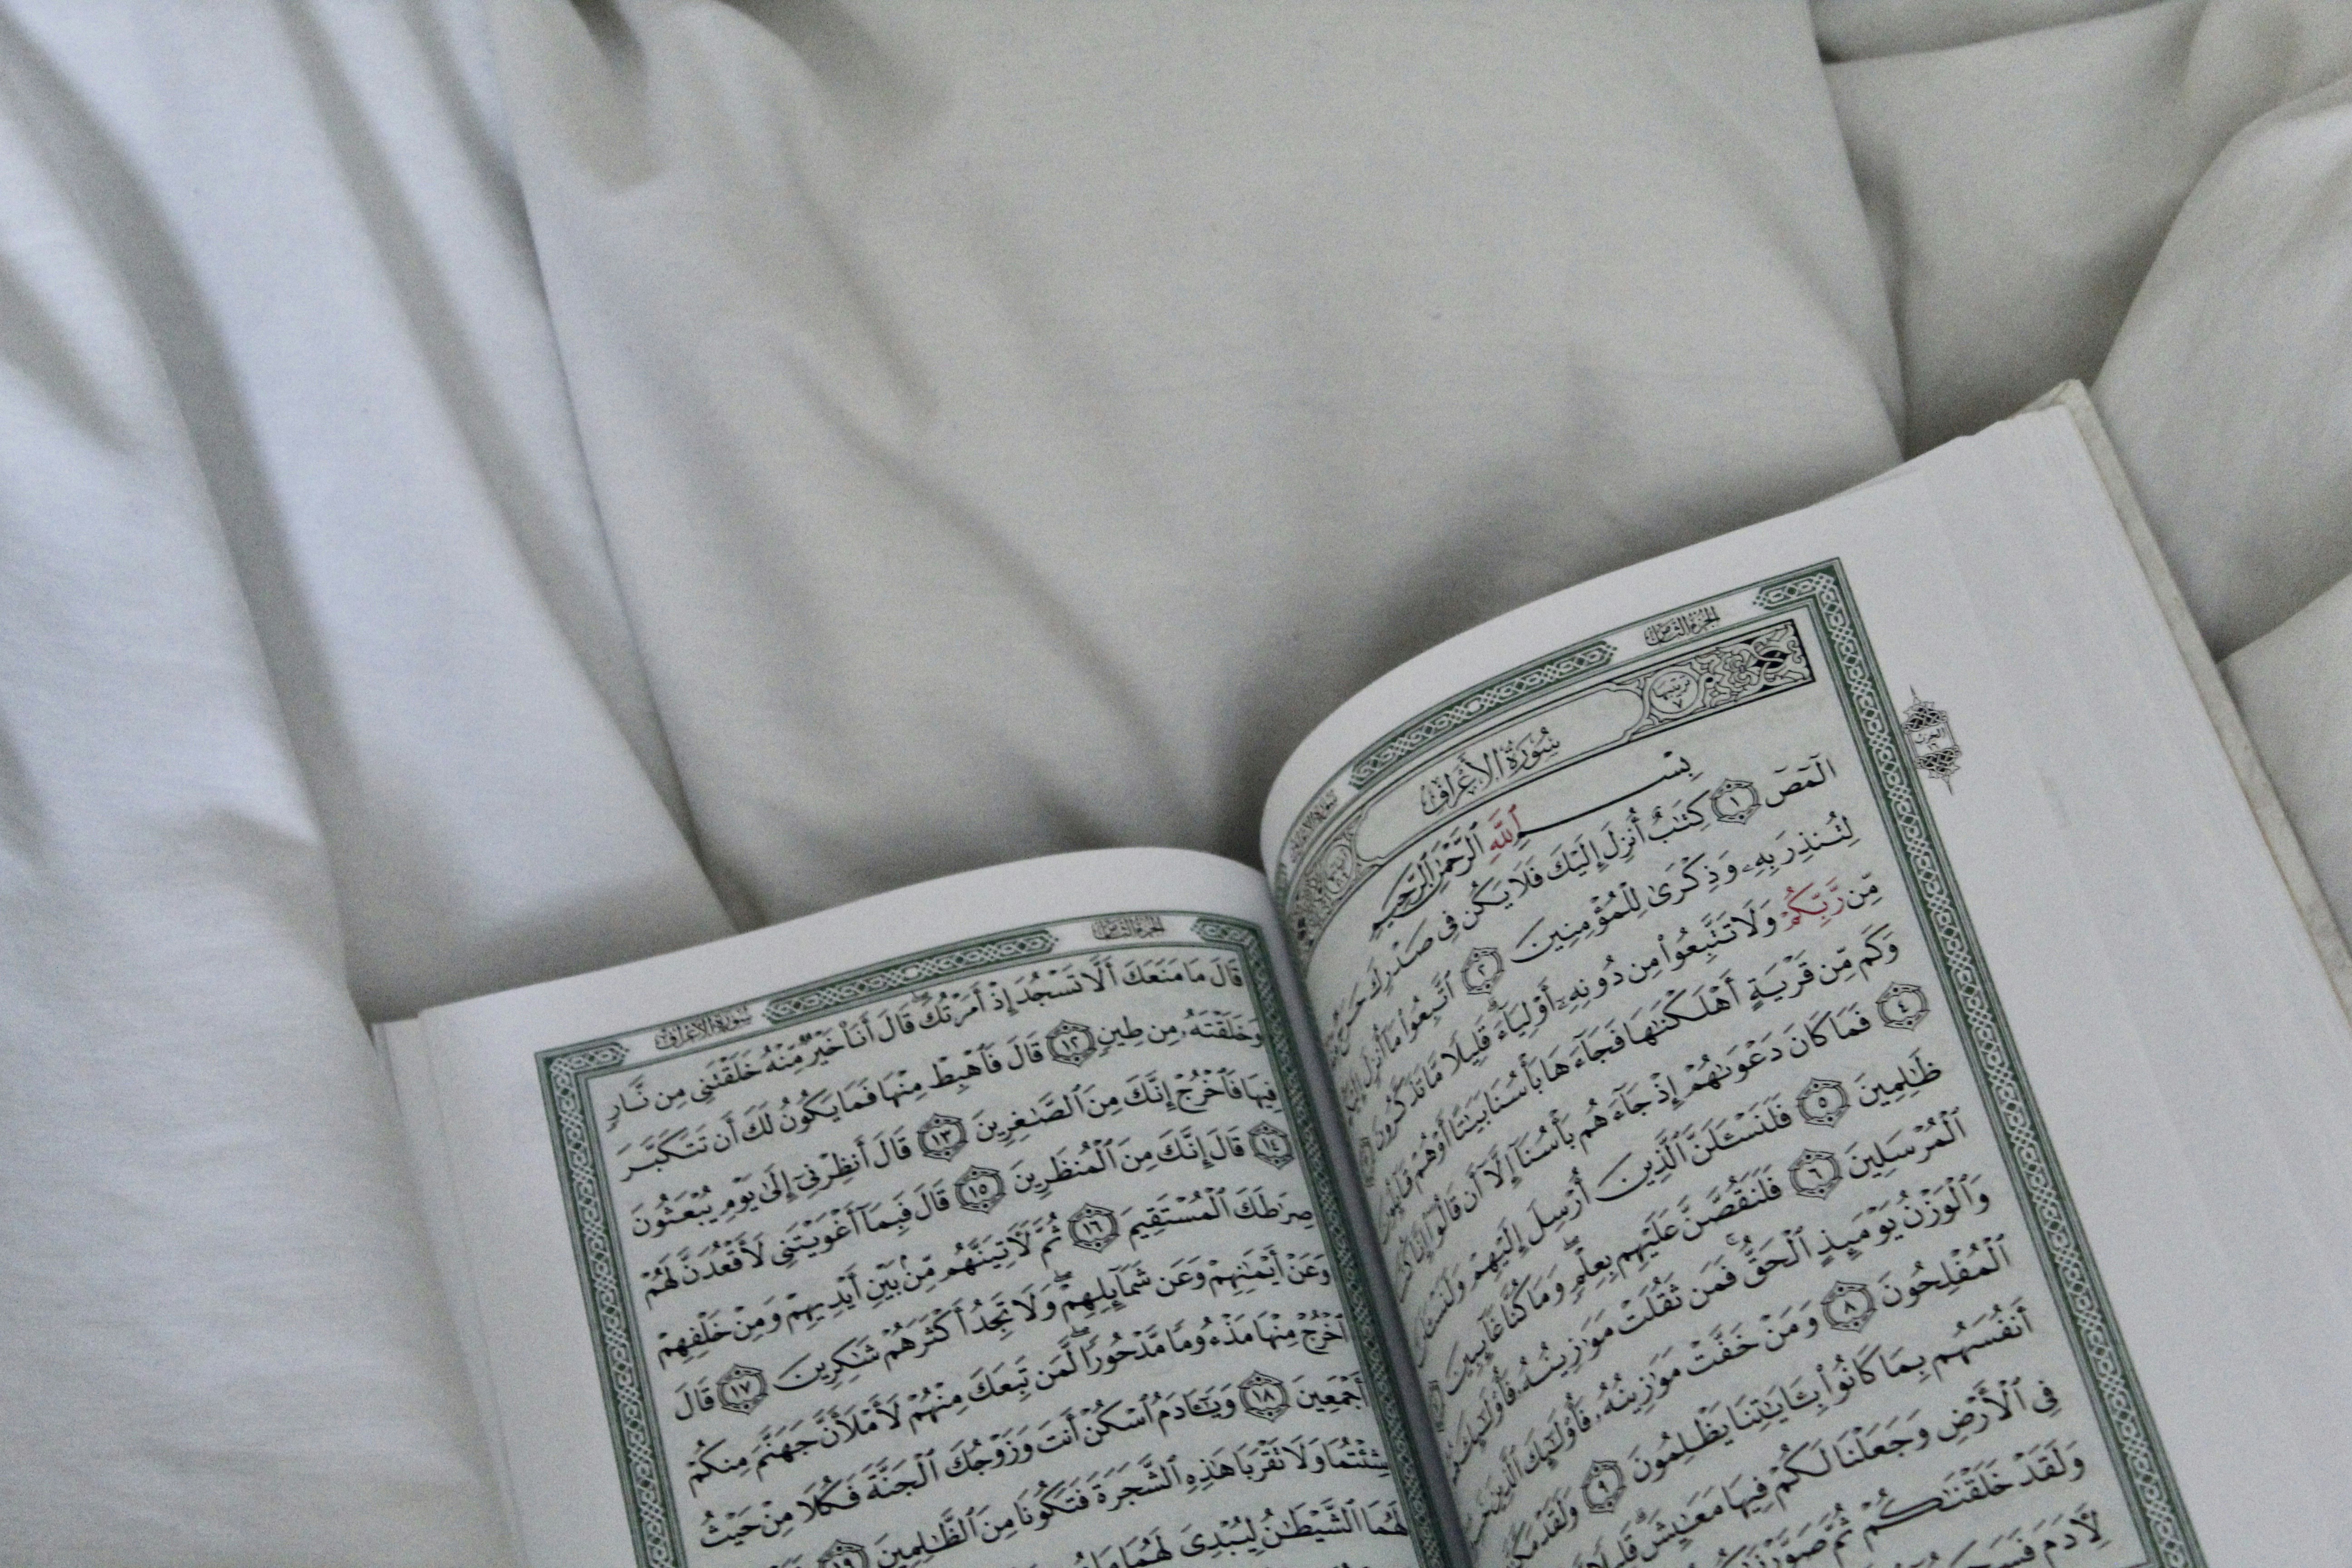 الجزء الثامن
سورة الأعراف
ترتيبها ٧
سُورَةُ الأَعْرَافِ
الحزب ١٦
بِسْمِ ٱللَّهِ ٱلرَّحْمَٰنِ ٱلرَّحِيمِ
الٓمٓصٓ ١ كِتَٰبٌ أُنزِلَ إِلَيْكَ فَلَا يَكُن فِى صَدْرِكَ حَرَجٌ
لِتُنذِرَ بِهِۦ وَذِكْرَىٰ لِلْمُؤْمِنِينَ ٢ ٱتَّبِعُوا۟ مَآ أُنزِلَ
مِّن رَّبِّكُمْ وَلَا تَتَّبِعُوا۟ مِن دُونِهِۦٓ أَوْلِيَآءَ قَلِيلًا مَّا تَذَكَّرُونَ
وَكَم مِّن قَرْيَةٍ أَهْلَكْنَٰهَا فَجَآءَهَا بَأْسُنَا بَيَٰتًا أَوْ هُمْ قَآئِلُونَ
٤ فَمَا كَانَ دَعْوَىٰهُمْ إِذْ جَآءَهُم بَأْسُنَآ إِلَّآ أَن قَالُوٓا۟ إِنَّا كُنَّا
ظَٰلِمِينَ ٥ فَلَنَسْـَٔلَنَّ ٱلَّذِينَ أُرْسِلَ إِلَيْهِمْ وَلَنَسْـَٔلَنَّ
ٱلْمُرْسَلِينَ ٦ فَلَنَقُصَّنَّ عَلَيْهِم بِعِلْمٍ وَمَا كُنَّا غَآئِبِينَ
وَٱلْوَزْنُ يَوْمَئِذٍ ٱلْحَقُّ فَمَن ثَقُلَتْ مَوَٰزِينُهُۥ فَأُو۟لَٰٓئِكَ هُمُ
ٱلْمُفْلِحُونَ ٨ وَمَنْ خَفَّتْ مَوَٰزِينُهُۥ فَأُو۟لَٰٓئِكَ ٱلَّذِينَ
أَنفُسَهُم بِمَا كَانُوا۟ بِـَٔايَٰتِنَا يَظْلِمُونَ ٩ وَلَقَدْ
فِى ٱلْأَرْضِ وَجَعَلْنَا لَكُمْ فِيهَا مَعَٰيِشَ قَلِيلًا
وَلَقَدْ خَلَقْنَٰكُمْ ثُمَّ صَوَّرْنَٰكُمْ
لِـَٔادَمَ
الجزء الثامن
سورة الأعراف
قَالَ مَا مَنَعَكَ أَلَّا تَسْجُدَ إِذْ أَمَرْتُكَ قَالَ أَنَا۠ خَيْرٌ مِّنْهُ خَلَقْتَنِى مِن نَّارٍ
وَخَلَقْتَهُۥ مِن طِينٍ ١٢ قَالَ فَٱهْبِطْ مِنْهَا فَمَا يَكُونُ لَكَ أَن تَتَكَبَّرَ
فِيهَا فَٱخْرُجْ إِنَّكَ مِنَ ٱلصَّٰغِرِينَ ١٣ قَالَ أَنظِرْنِىٓ إِلَىٰ يَوْمِ يُبْعَثُونَ
١٤ قَالَ إِنَّكَ مِنَ ٱلْمُنظَرِينَ ١٥ قَالَ فَبِمَآ أَغْوَيْتَنِى لَأَقْعُدَنَّ لَهُمْ
صِرَٰطَكَ ٱلْمُسْتَقِيمَ ١٦ ثُمَّ لَـَٔاتِيَنَّهُم مِّنۢ بَيْنِ أَيْدِيهِمْ وَمِنْ خَلْفِهِمْ
وَعَنْ أَيْمَٰنِهِمْ وَعَن شَمَآئِلِهِمْ وَلَا تَجِدُ أَكْثَرَهُمْ شَٰكِرِينَ ١٧ قَالَ
ٱخْرُجْ مِنْهَا مَذْءُومًا مَّدْحُورًا لَّمَن تَبِعَكَ مِنْهُمْ لَأَمْلَأَنَّ جَهَنَّمَ مِنكُمْ
أَجْمَعِينَ ١٨ وَيَٰٓـَٔادَمُ ٱسْكُنْ أَنتَ وَزَوْجُكَ ٱلْجَنَّةَ فَكُلَا مِنْ حَيْثُ
شِئْتُمَا وَلَا تَقْرَبَا هَٰذِهِ ٱلشَّجَرَةَ فَتَكُونَا مِنَ ٱلظَّٰلِمِينَ ١٩
لَهُمَا ٱلشَّيْطَٰنُ لِيُبْدِىَ لَهُمَا